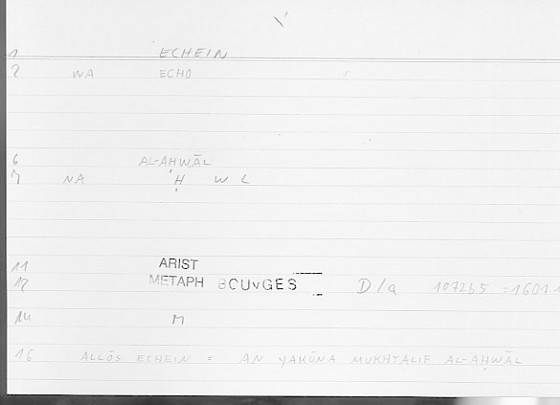 1 ECHEIN
2 WA ECHO
6 AL-AḤWĀL
7 NA Ḥ W L
11 ARIST
12 METAPH BOUYGES D/a 1072b5 = 1601.1
14 M
16 ALLŌS ECHEIN = AN YAKŪNA MUKHTALIF AL-AḤWĀL